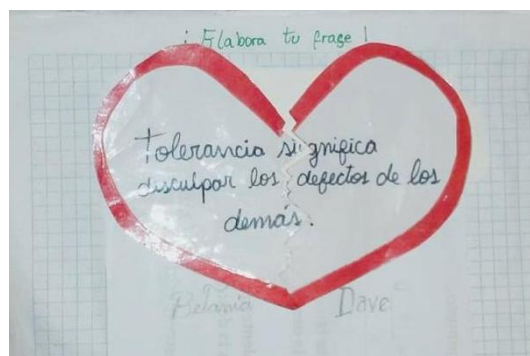 ¡ Elabora tu frase !
Tolerancia significa
disculpar los defectos de los
demás.
Betania Dave